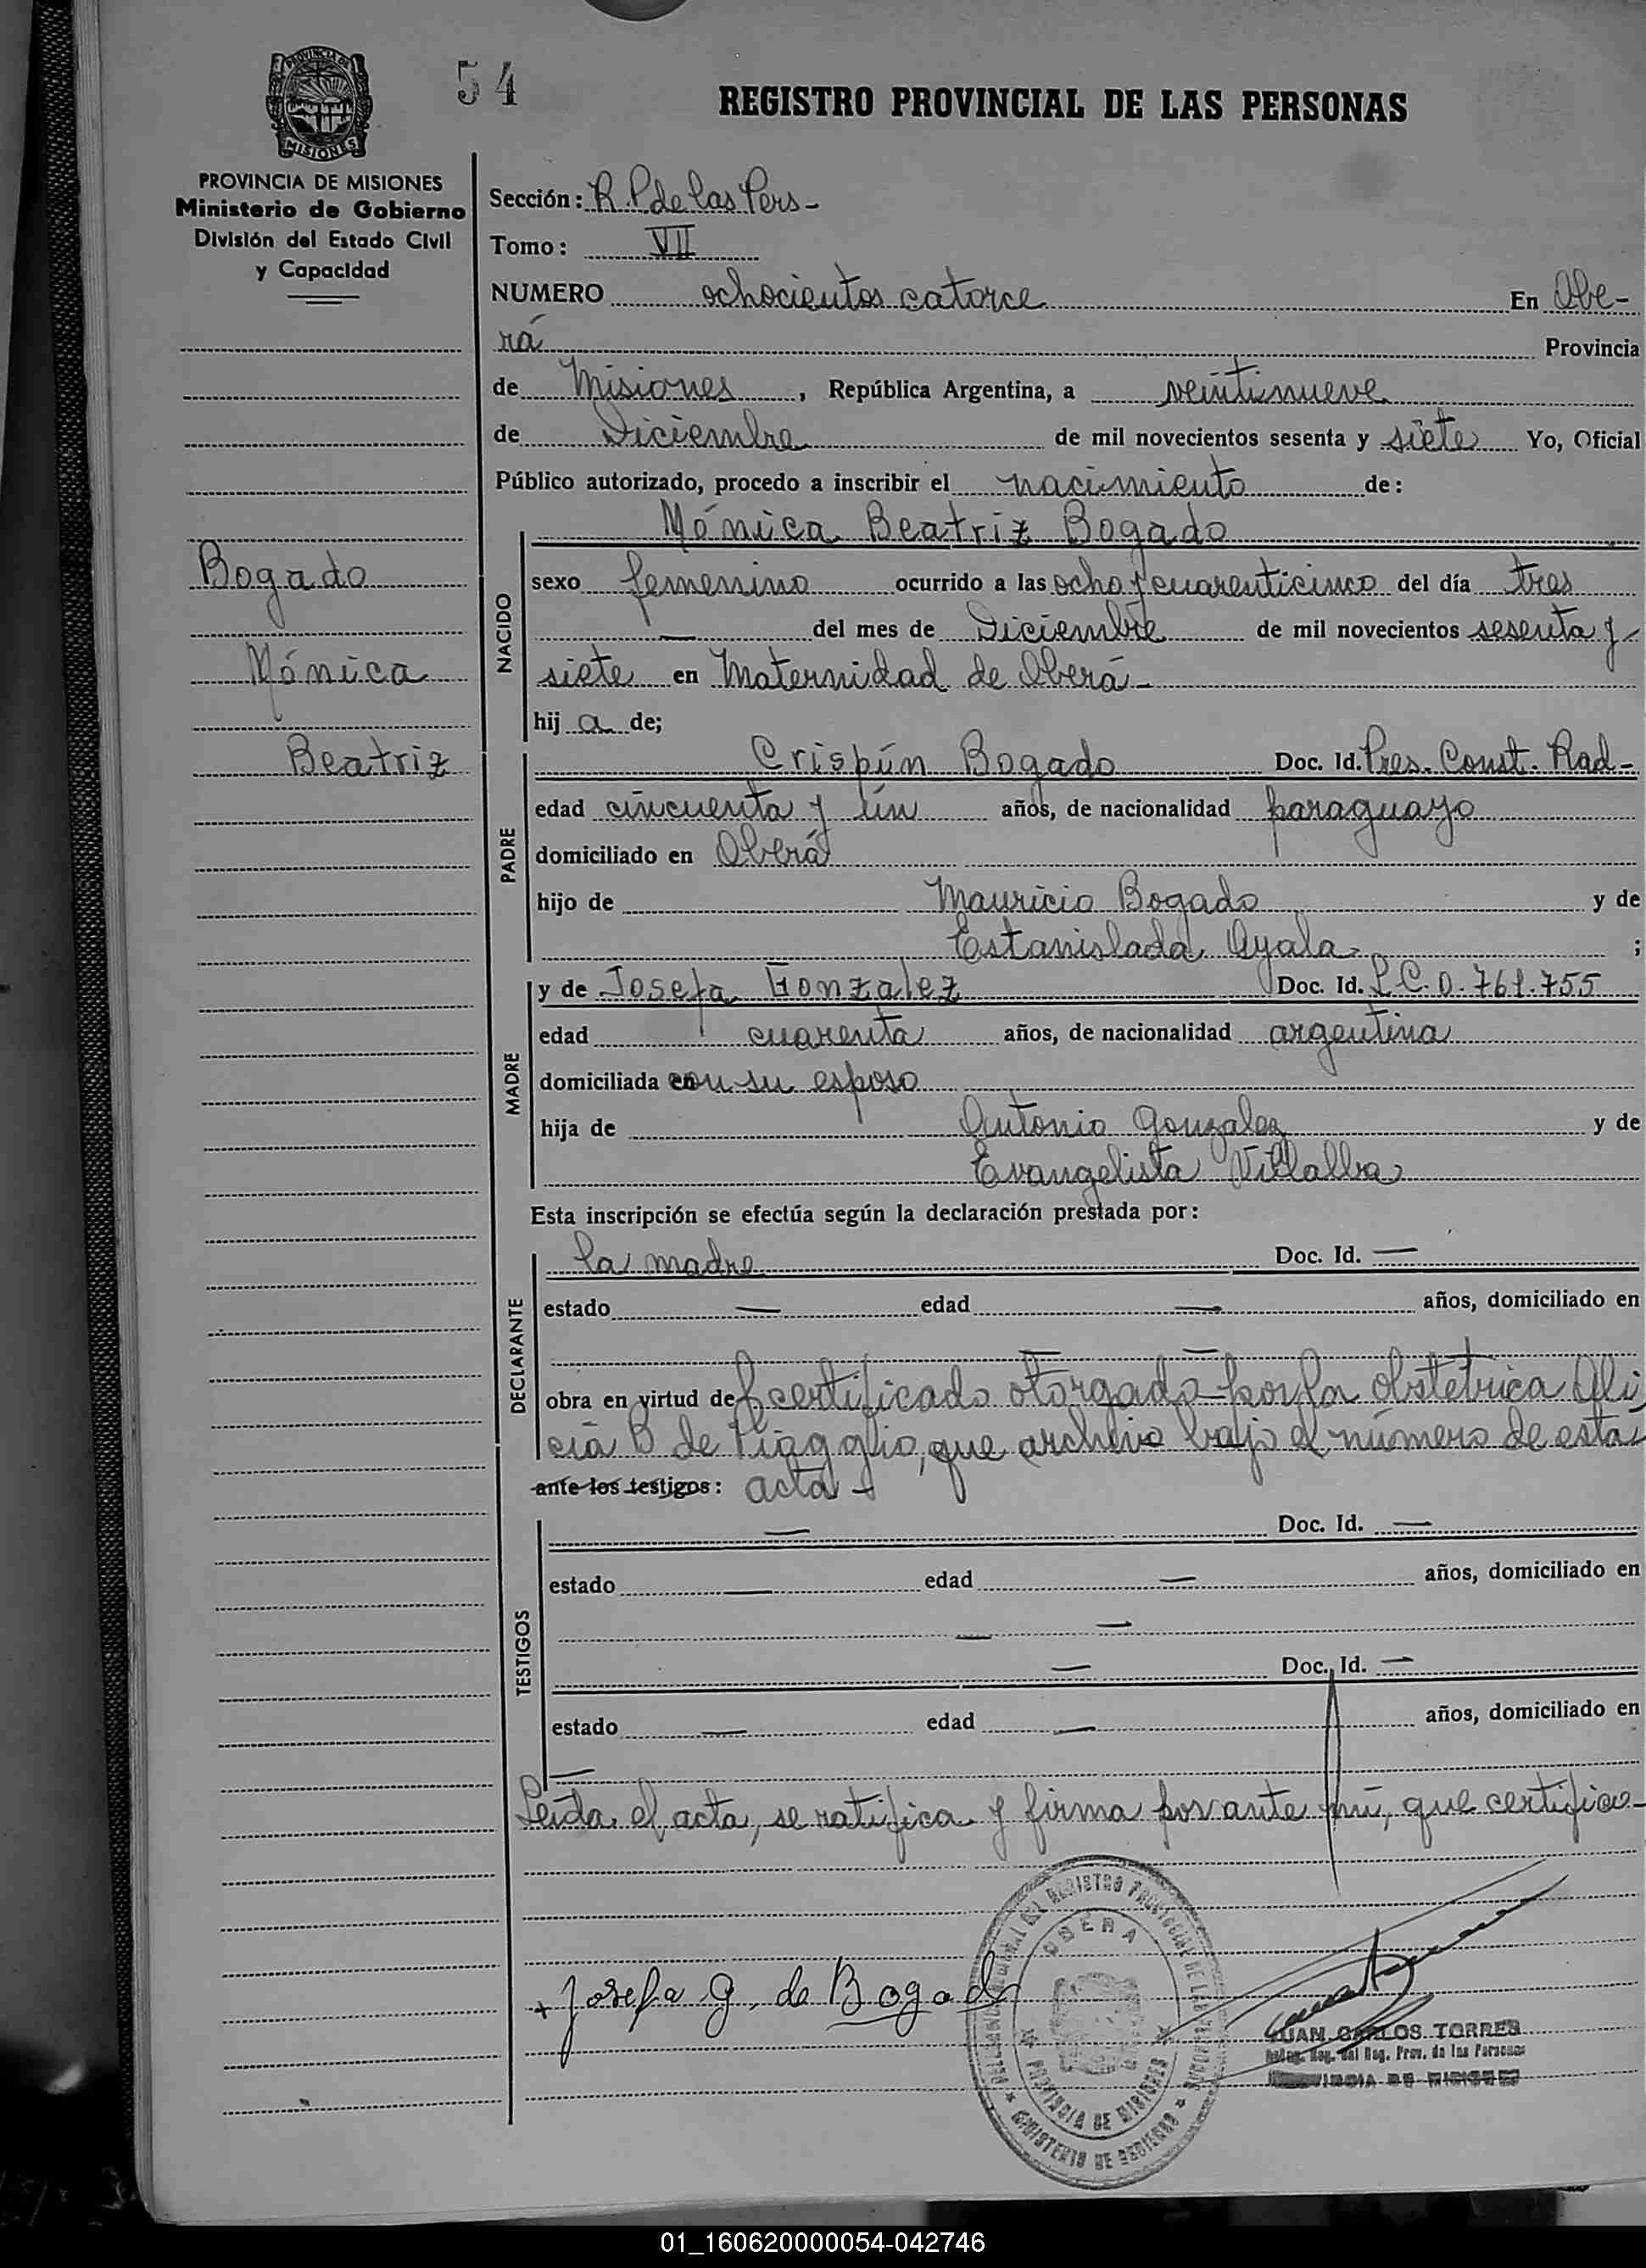 54
REGISTRO PROVINCIAL DE LAS PERSONAS
PROVINCIA DE
MISIONES
PROVINCIA DE MISIONES
Ministerio de Gobierno
División del Estado Civil
y Capacidad
Bogado
Mónica
Beatriz
Sección: R. P. de las Pers-
Tomo: VII
NUMERO ochocientos catorce En Obe-
rá Provincia
de Misiones, República Argentina, a veintinueve
de Diciembre de mil novecientos sesenta y siete Yo, Oficial
Público autorizado, procedo a inscribir el nacimiento de:
Mónica Beatriz Bogado
NACIDO
sexo femenino ocurrido a las ocho y cuarenticinco del día tres
— del mes de Diciembre de mil novecientos sesenta y-
siete en Maternidad de Oberá-
hij a de;
PADRE
Crispín Bogado Doc. Id. Pres. Const. Rad-
edad cincuenta y un años, de nacionalidad paraguayo
domiciliado en Oberá
hijo de Mauricio Bogado y de
Estanislada Ayala ;
MADRE
y de Josefa Gonzalez Doc. Id. L.C. 0.761.755
edad cuarenta años, de nacionalidad argentina
domiciliada con su esposo
hija de Antonio Gonzalez y de
Evangelista Villalba
Esta inscripción se efectúa según la declaración prestada por:
DECLARANTE
la madre Doc. Id. —
estado — edad — años, domiciliado en
— —
obra en virtud del certificado otorgado por la obstetrica Ali
cia B de Piaggio, que archivo bajo el número de esta
ante los testigos: acta-
TESTIGOS
— Doc. Id. —
estado — edad — años, domiciliado en
— —
— Doc. Id. —
estado — edad — años, domiciliado en
—
Leida el acta, se ratifica y firma por ante mí, que certifico-
+ Josefa G. de Bogado
REGISTRO PROVINCIAL DE LAS
OBERA
PROVINCIA DE MISIONES
MINISTERIO DE GOBIERNO
JUAN CARLOS TORRES
Reg. del Reg. Prov. de las Personas
PROVINCIA DE MISIONES
01_160620000054-042746